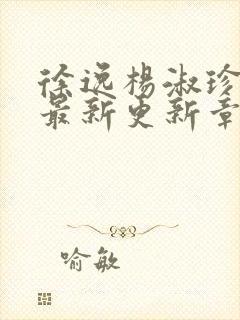 徐逸楊淑珍
最新更新章
喻敏